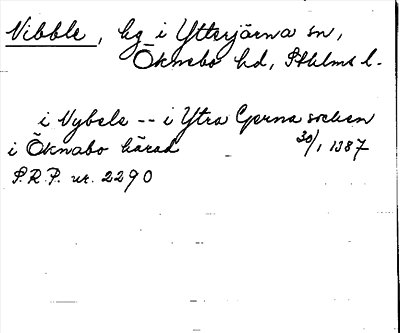 Vibble, hg i Ytterjärna sn,
Öknebo hd, Sthlms l.
i Vybele -- i Ytra Gerna socken
i Öknabo härad 30/1 1387
S.R.P. nr. 2290